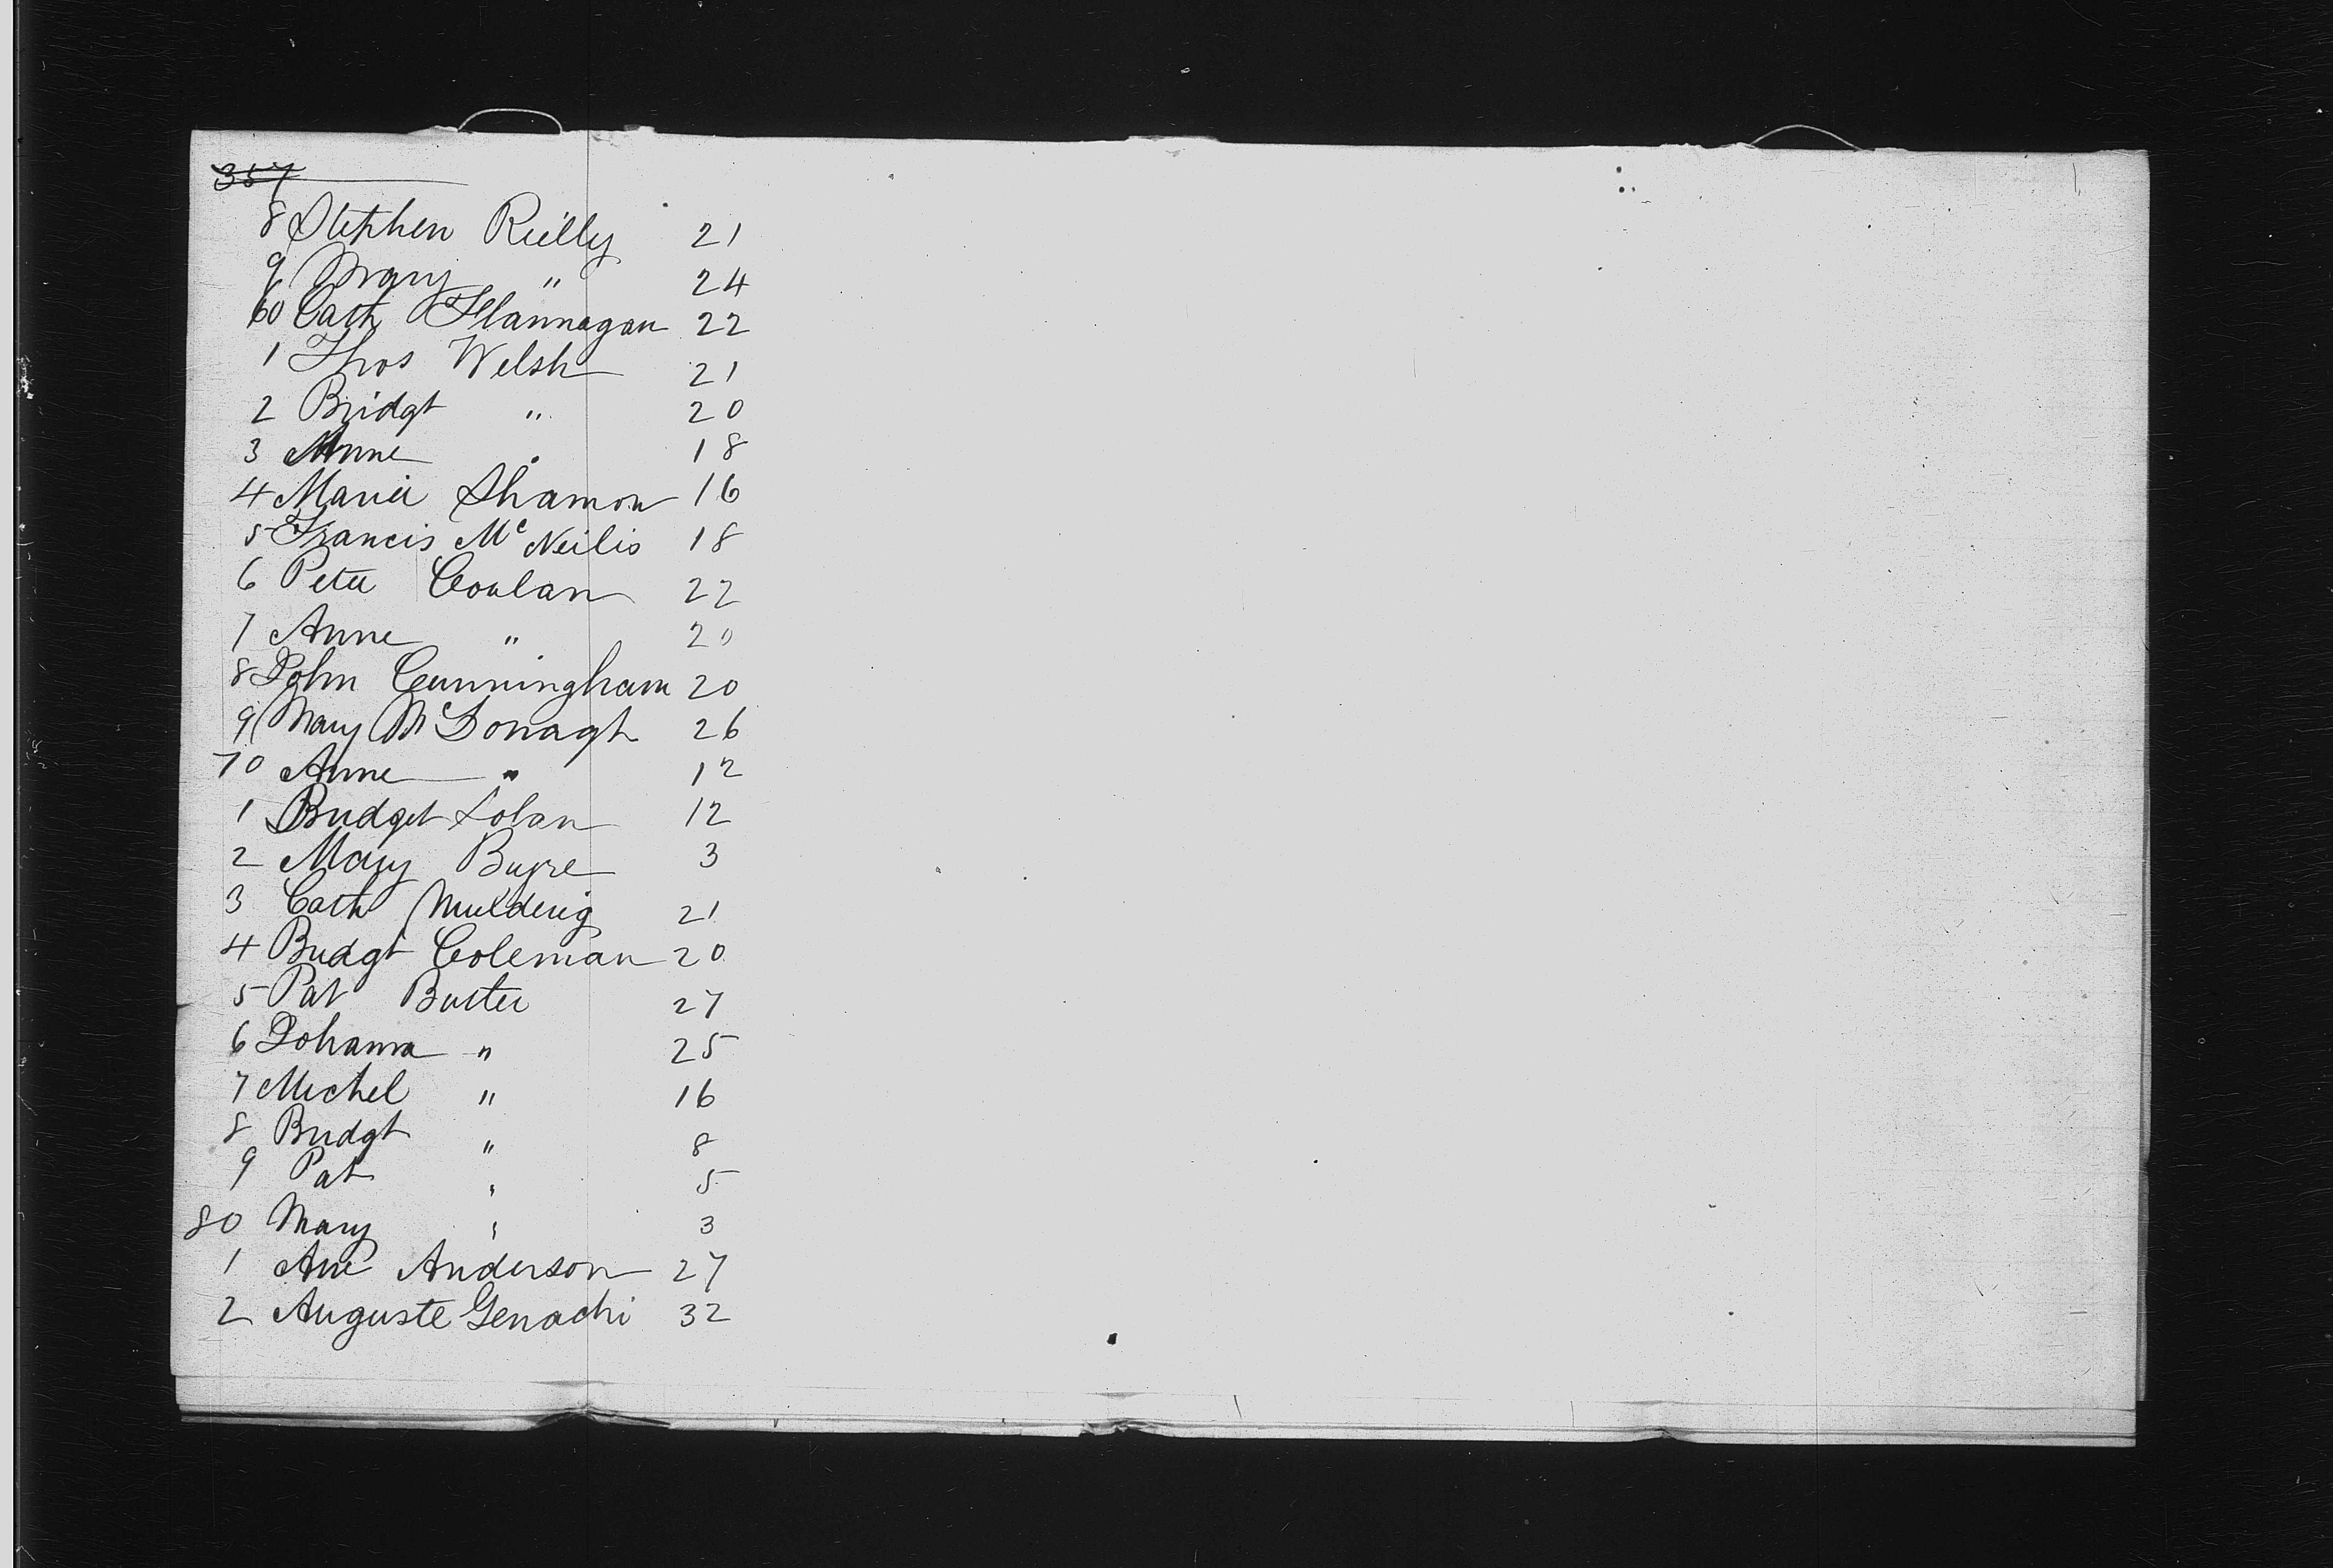 357
8 Stephen Reilly 21
9 Mary " 24
60 Cath Flannagan 22
1 Thos Welsh 21
2 Bridgt " 20
3 Anne " 18
4 Maria Shannon 16
5 Francis McNeilis 18
6 Peter Conlan 22
7 Anne " 20
8 John Cunningham 20
9 Mary McDonagh 26
70 Anne " 12
1 Bridget 12
2 Mary 3
3 Cath Mulderig 21
4 Bridgt Coleman 20
5 Pat 27
6 Johanna " 25
7 Michel " 16
8 Bridgt " 8
9 Pat " 5
80 Mary " 3
1 Ane Anderson 27
2 Auguste Genachi 32